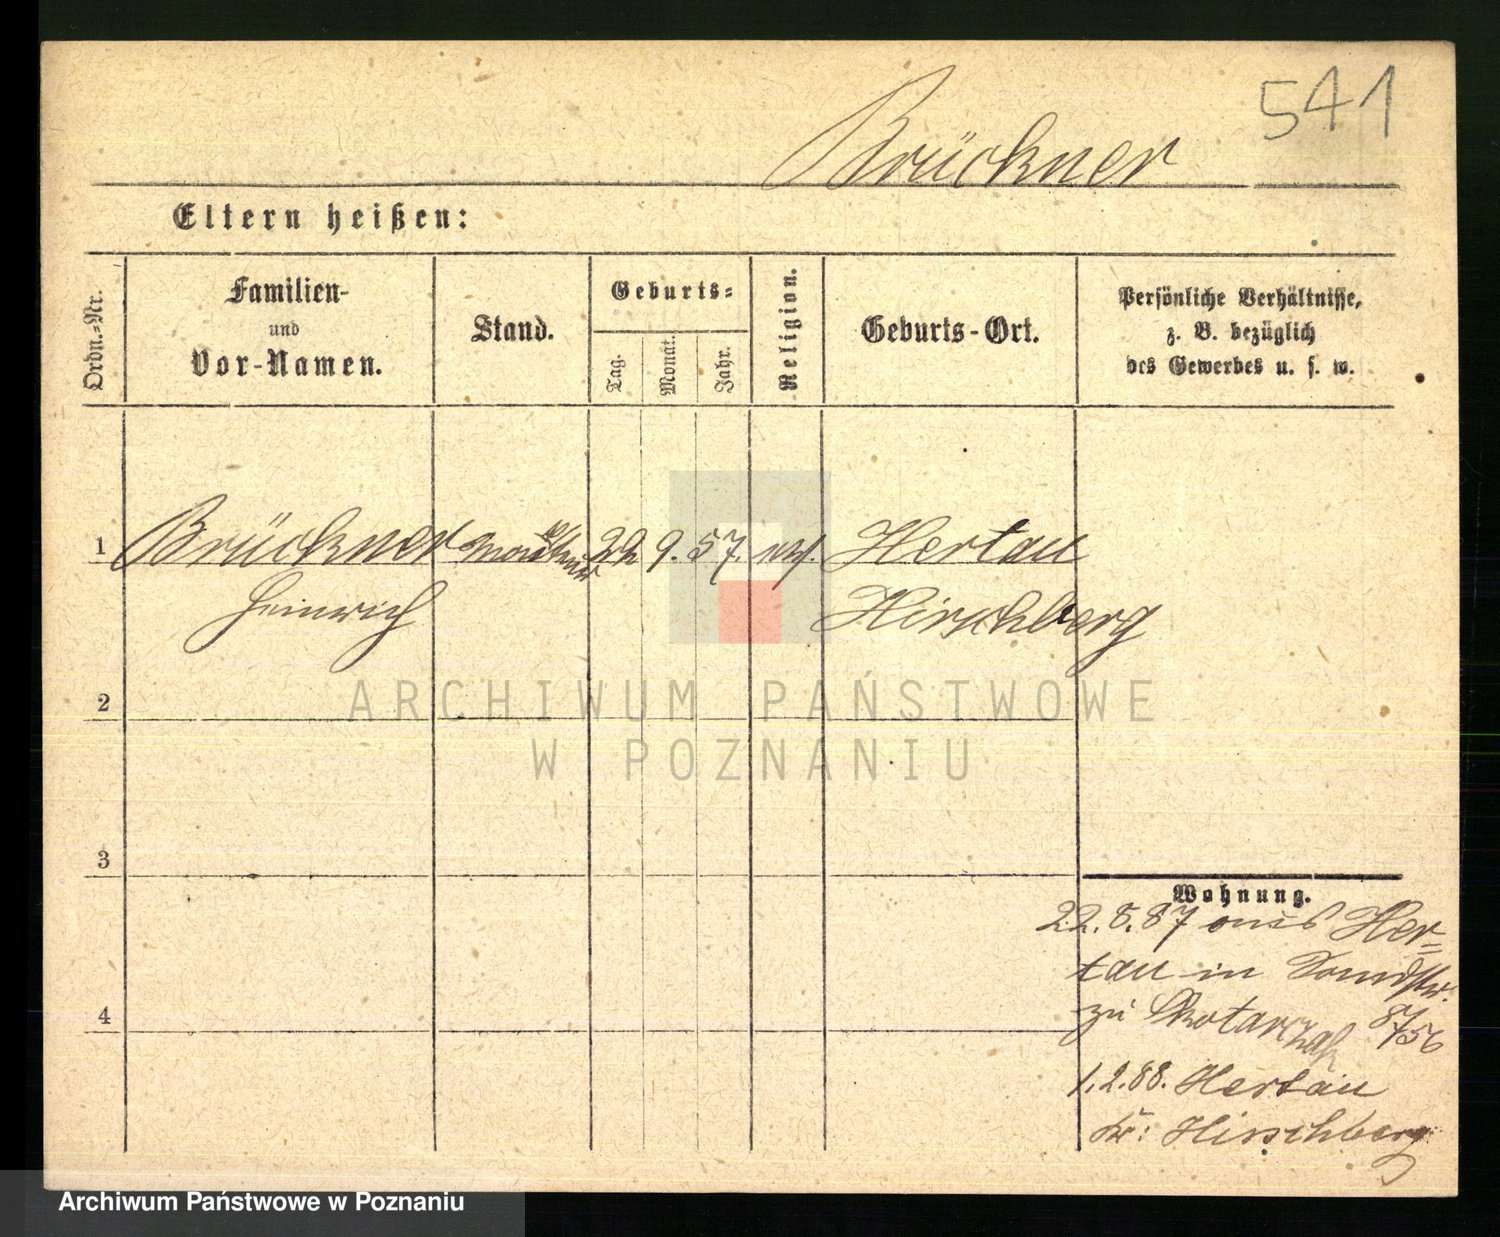 541
Brückner
Eltern heißen:
Ordn.-Nr.
Familien-
und
Vor-Namen.
Stand.
Geburts-
Tag.
Monat.
Jahr.
Religion.
Geburts-Ort.
Persönliche Verhältnisse,
z. B. bezüglich
des Gewerbes u. s. w.
1 Brückner 22 9. 57. Hertau
Heinrich Hirschberg
2
3
4
Wohnung.
22.8.87 aus Her-
tau in
zu 87/56
1.2.88. Hertau
Kr: Hirschberg
ARCHIWUM PAŃSTWOWE
W POZNANIU
Archiwum Państwowe w Poznaniu